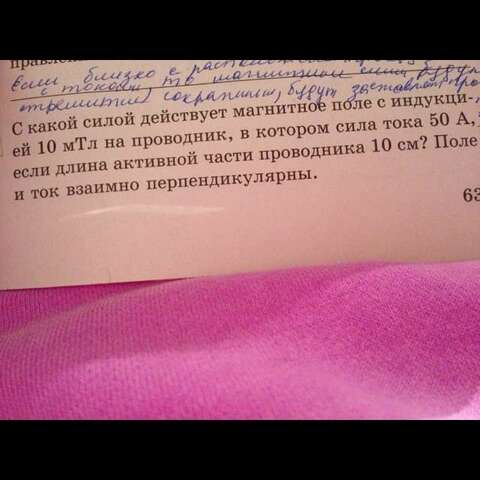 правлен
Если близко с
с током, то магнитные силы будут
стремиться сохранить, будут заставлят
С какой силой действует магнитное поле с индукци-
ей 10 мТл на проводник, в котором сила тока 50 А,
если длина активной части проводника 10 см? Поле
и ток взаимно перпендикулярны.
63